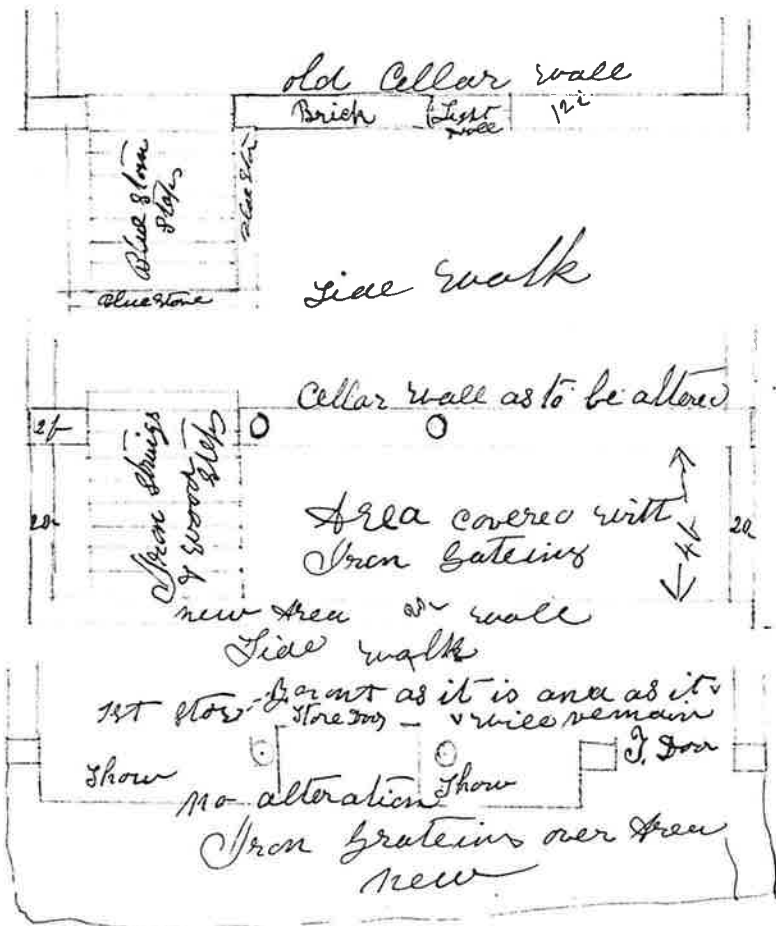 old Cellar wall
Brick
Light
well
12i
Blue Stone
Steps
Blue Ston
Blue Stone
Side walk
Cellar wall as to be altered
2f
Iron Strings
& Wood
Steps
20
Area covered with
Iron Grateing
4f
20
new Area wall
Side walk
1st Stor Front as it is and as it
Store Door will remain
Show
Show
F. Door
no alteration
Iron Grateing over Area
new